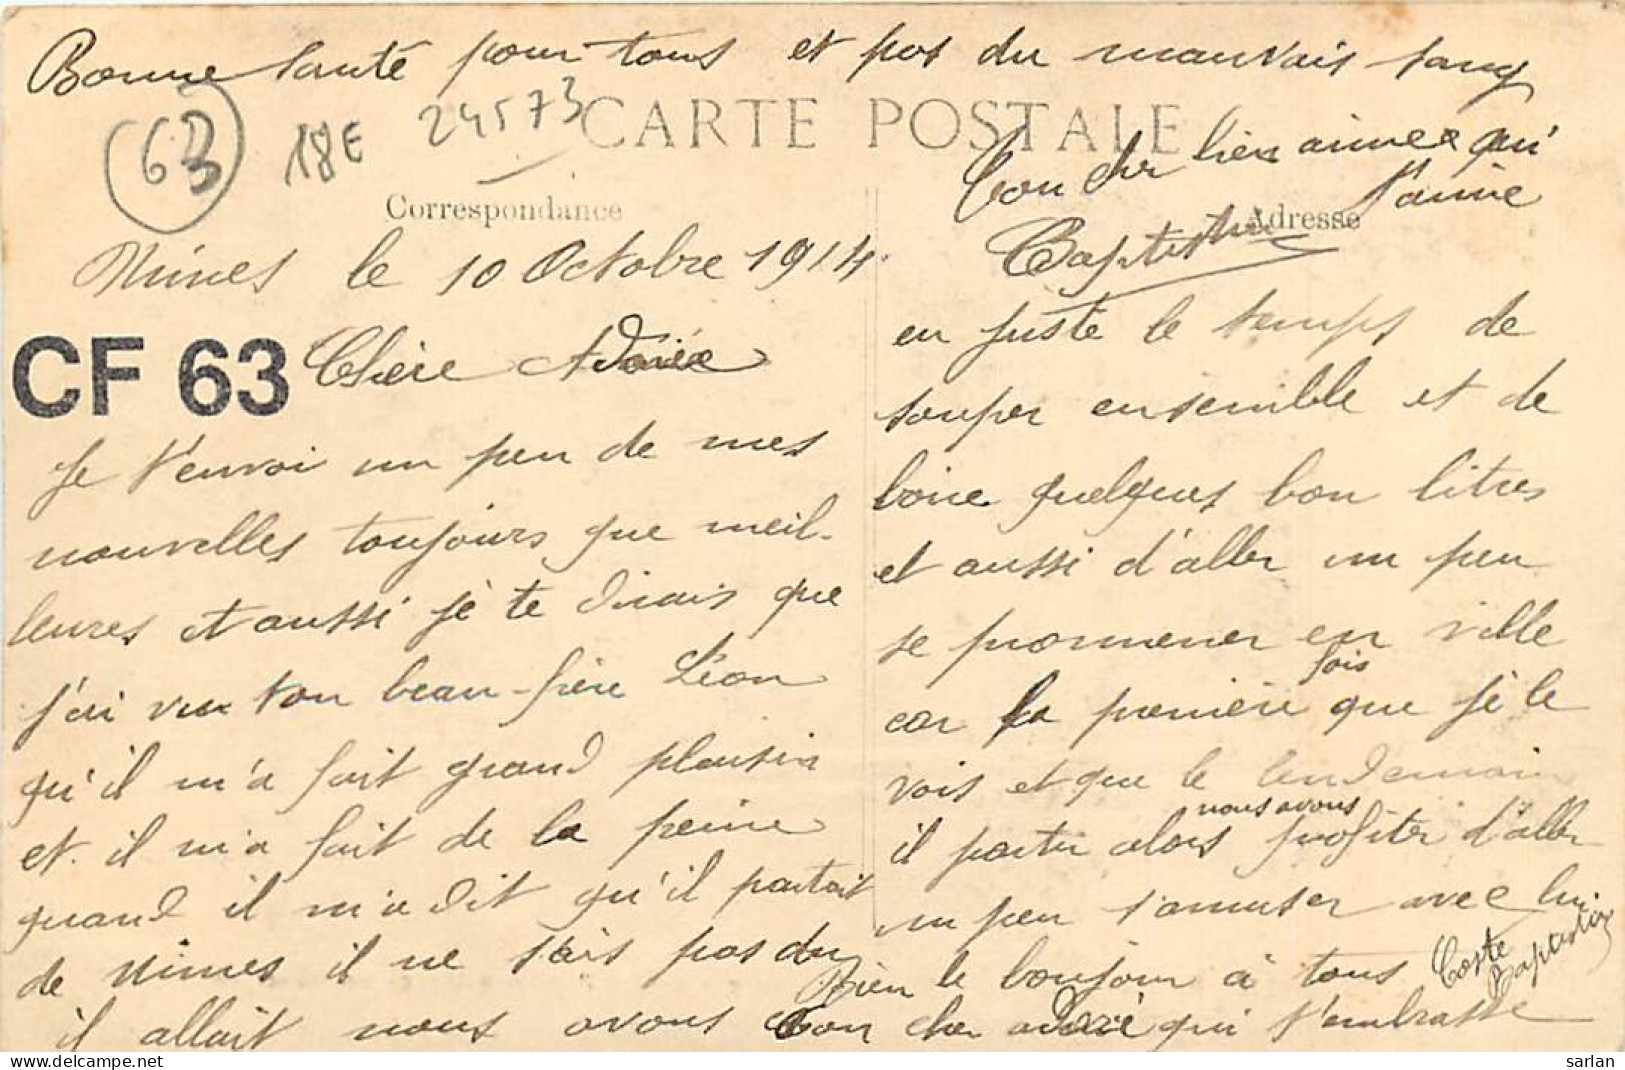 Bonne santé pour tous et pas du mauvais sang
63 18E 24573
CARTE POSTALE
Ton cher bien aimée qui
t'aime
Baptistin
Correspondance
Adresse
Nimes le 10 Octobre 1914
CF 63
Chère Adorée
Je t'envoi un peu de mes
nouvelles toujours que meil-
leures et aussi je te dirais que
j'ai vu ton beau-frère Léon
qu'il m'a fait grand plaisir
et il m'a fait de la peine
quand il m'a dit qu'il partait
de Nimes il ne sais pas du
il allait nous avons
en juste le temps de
souper ensemble et de
boire quelques bon litres
et aussi d'aller un peu
se promener en ville
car la première fois que je le
vois et que le lendemain
il partir alors nous avons profiter d'aller
un peu s'amuser avec lui
Bien le bonjour à tous
Ton cher adoré qui t'embrasse
Coste
Baptistin
sarlan